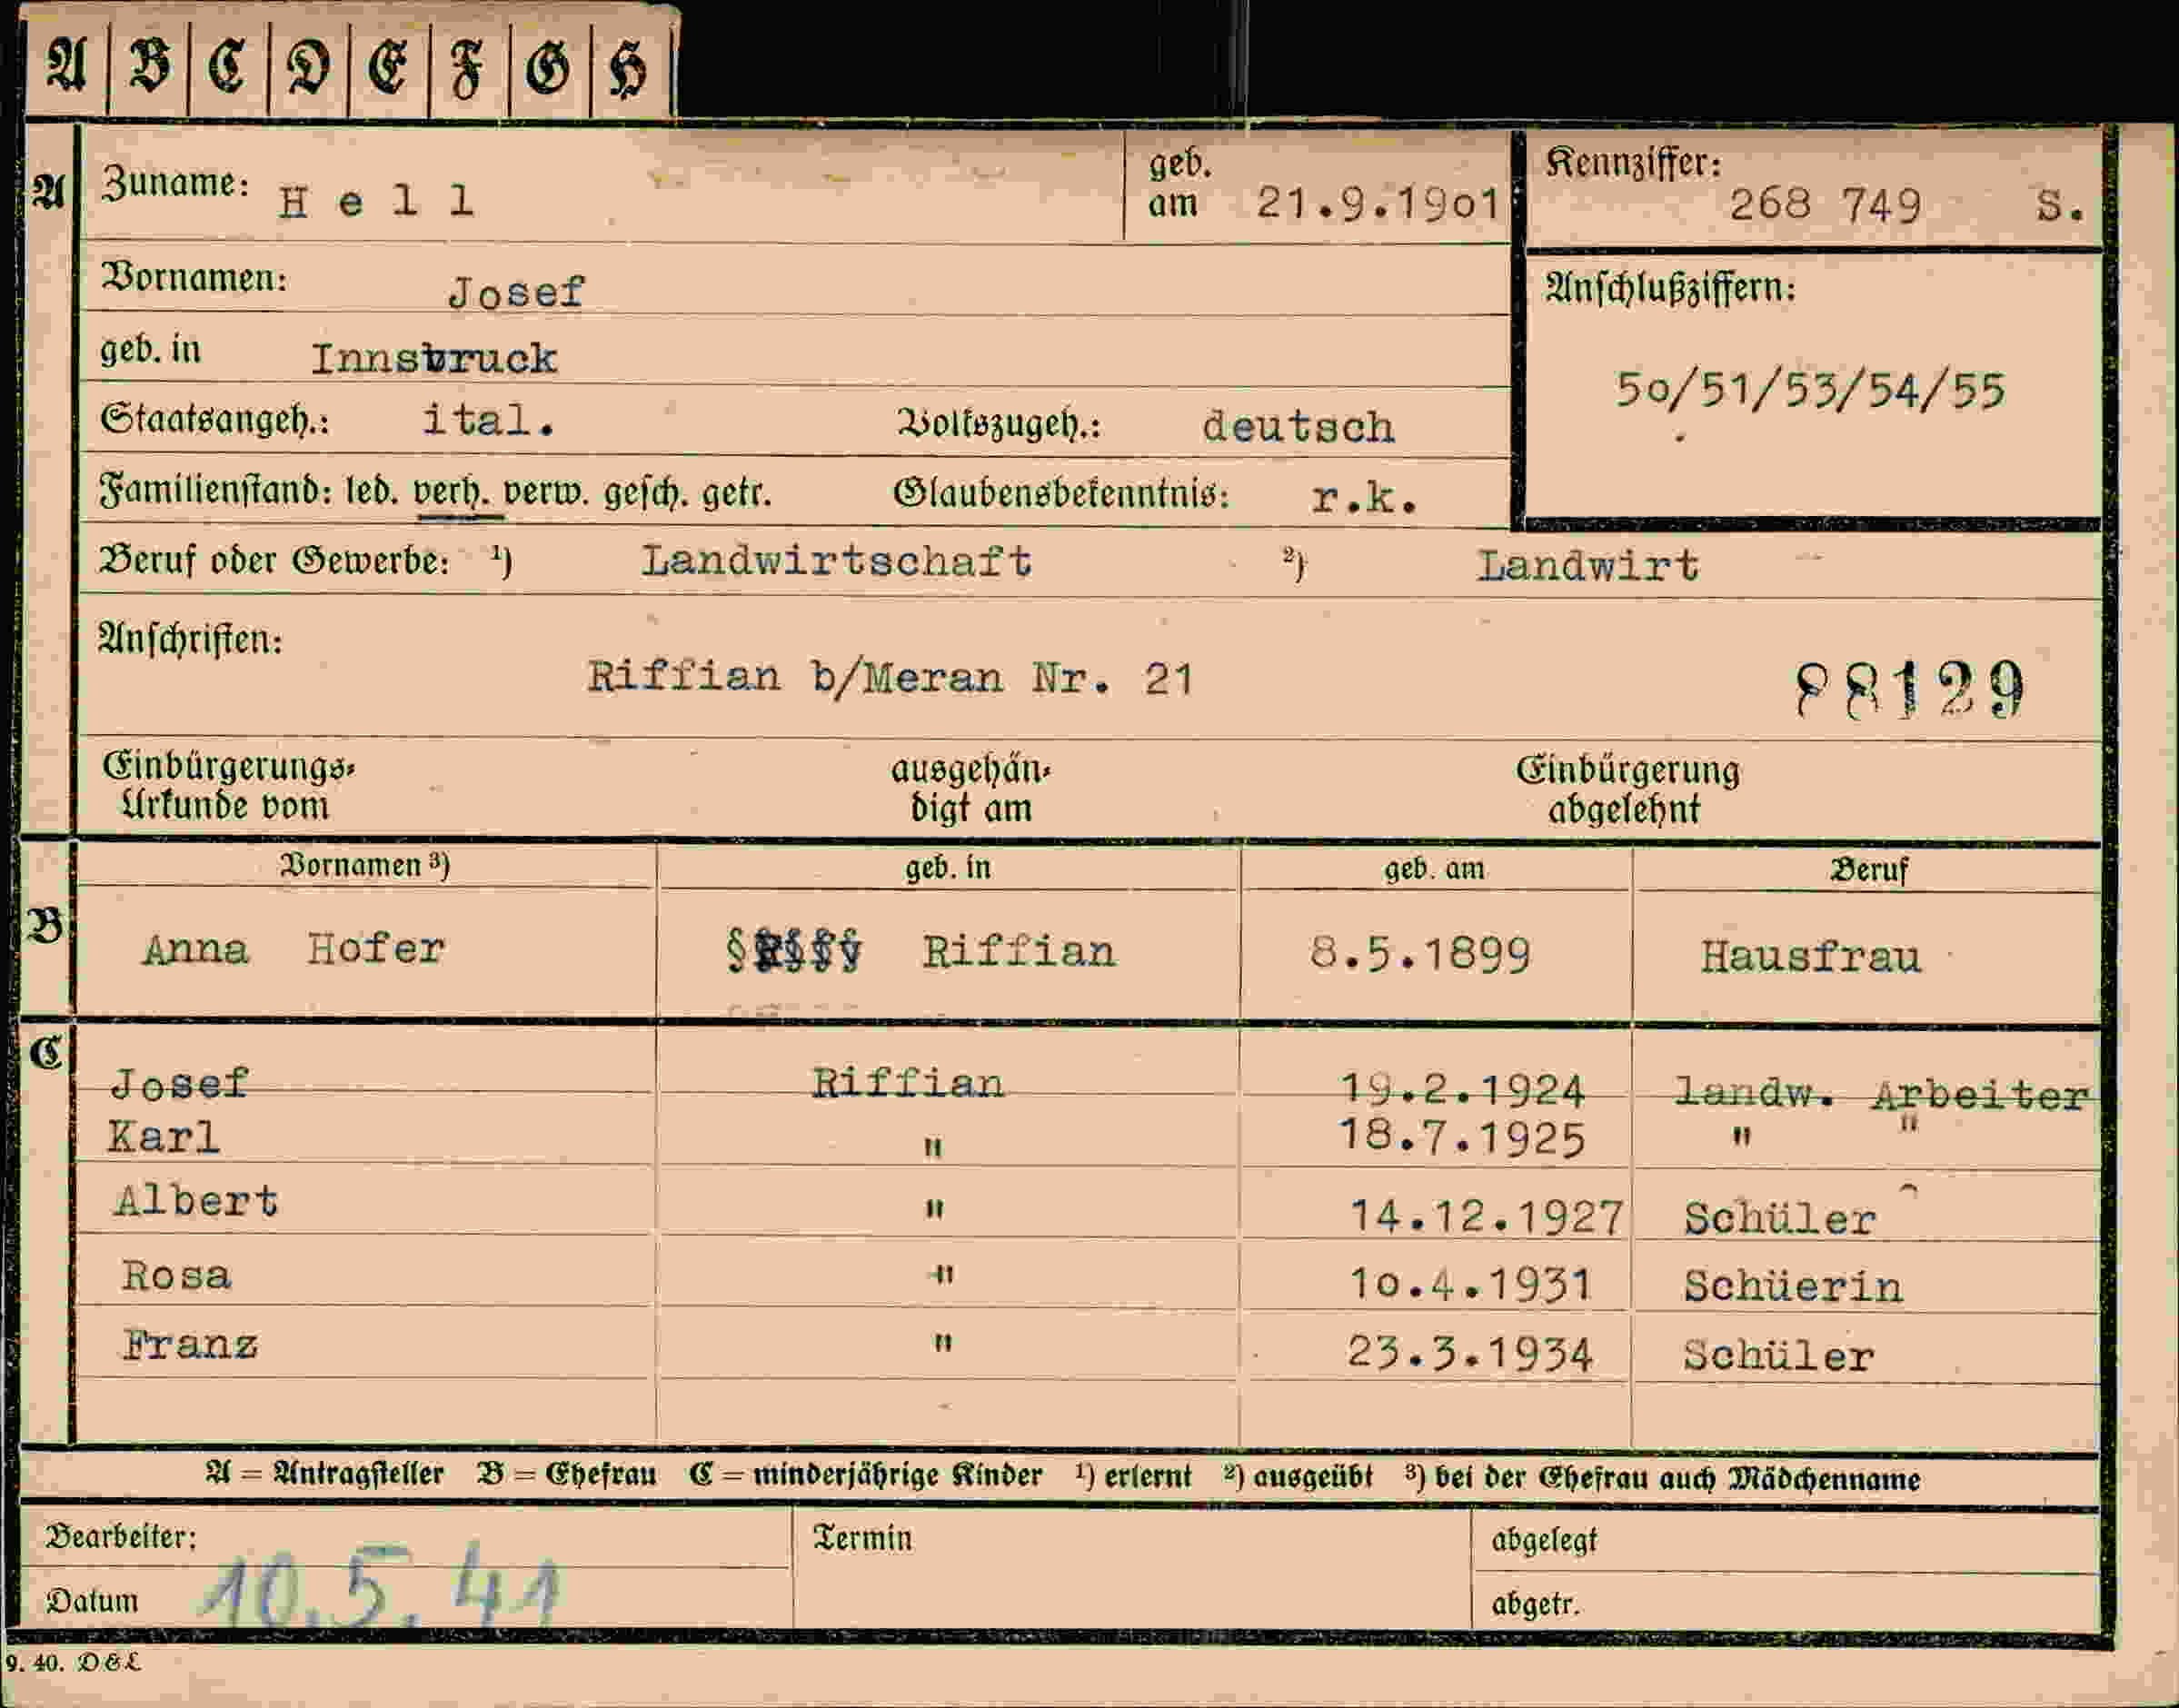 A B C D E F G H
A Zuname: Hell geb. am 21.9.19o1 Kennziffer: 268 749 S.
Vornamen: Josef Anschlußziffern:
geb. in Innsbruck 5o/51/53/54/55
Staatsangeh.: ital. Volkszugeh.: deutsch
Familienstand: led. verh. verw. gesch. getr. Glaubensbekenntnis: r.k.
Beruf oder Gewerbe: ¹) Landwirtschaft ²) Landwirt
Anschriften:
Riffian b/Meran Nr. 21 88129
Einbürgerungs- ausgehän- Einbürgerung
Urkunde vom digt am abgelehnt
Vornamen ³) geb. in geb. am Beruf
B Anna Hofer Riffian 8.5.1899 Hausfrau
C
Josef Riffian 19.2.1924 landw. Arbeiter
Karl " 18.7.1925 " "
Albert " 14.12.1927 Schüler
Rosa " 1o.4.1931 Schüerin
Franz " 23.3.1934 Schüler
A = Antragsteller B = Ehefrau C = minderjährige Kinder ¹) erlernt ²) ausgeübt ³) bei der Ehefrau auch Mädchenname
Bearbeiter: Termin abgelegt
Datum 10.5.41 abgetr.
9. 40. D&L